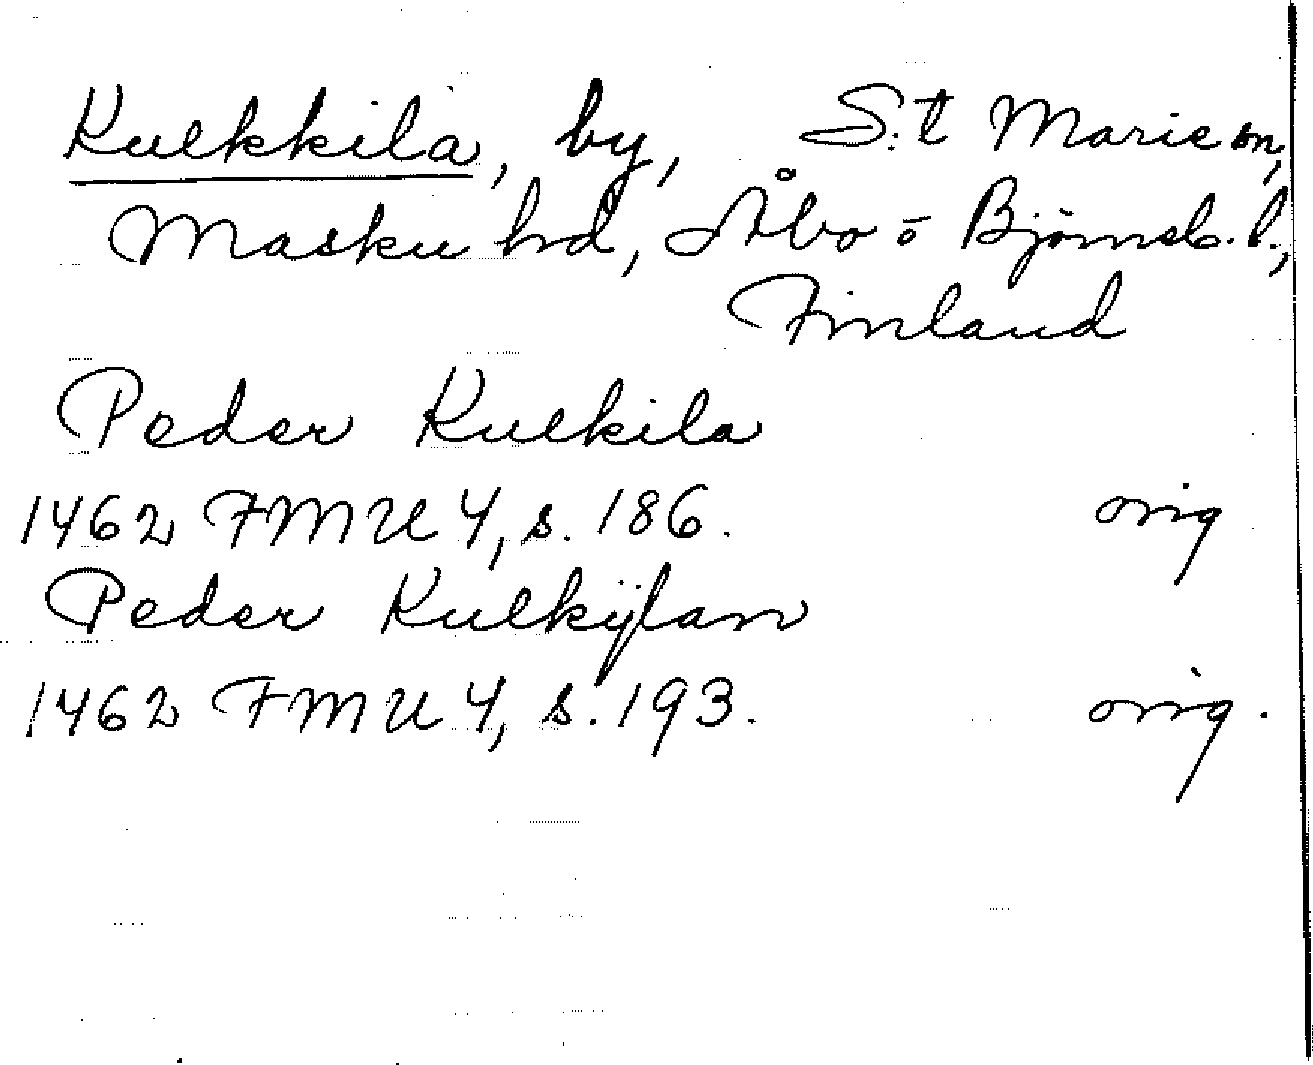 Kulkkila, by, S:t Marie sn,
Masku hd, Åbo o Björneb. l.,
Finland
Peder Kulkila
1462 FMU 4, s. 186. orig
Peder Kulkÿlan
1462 FMU 4, s. 193. orig.